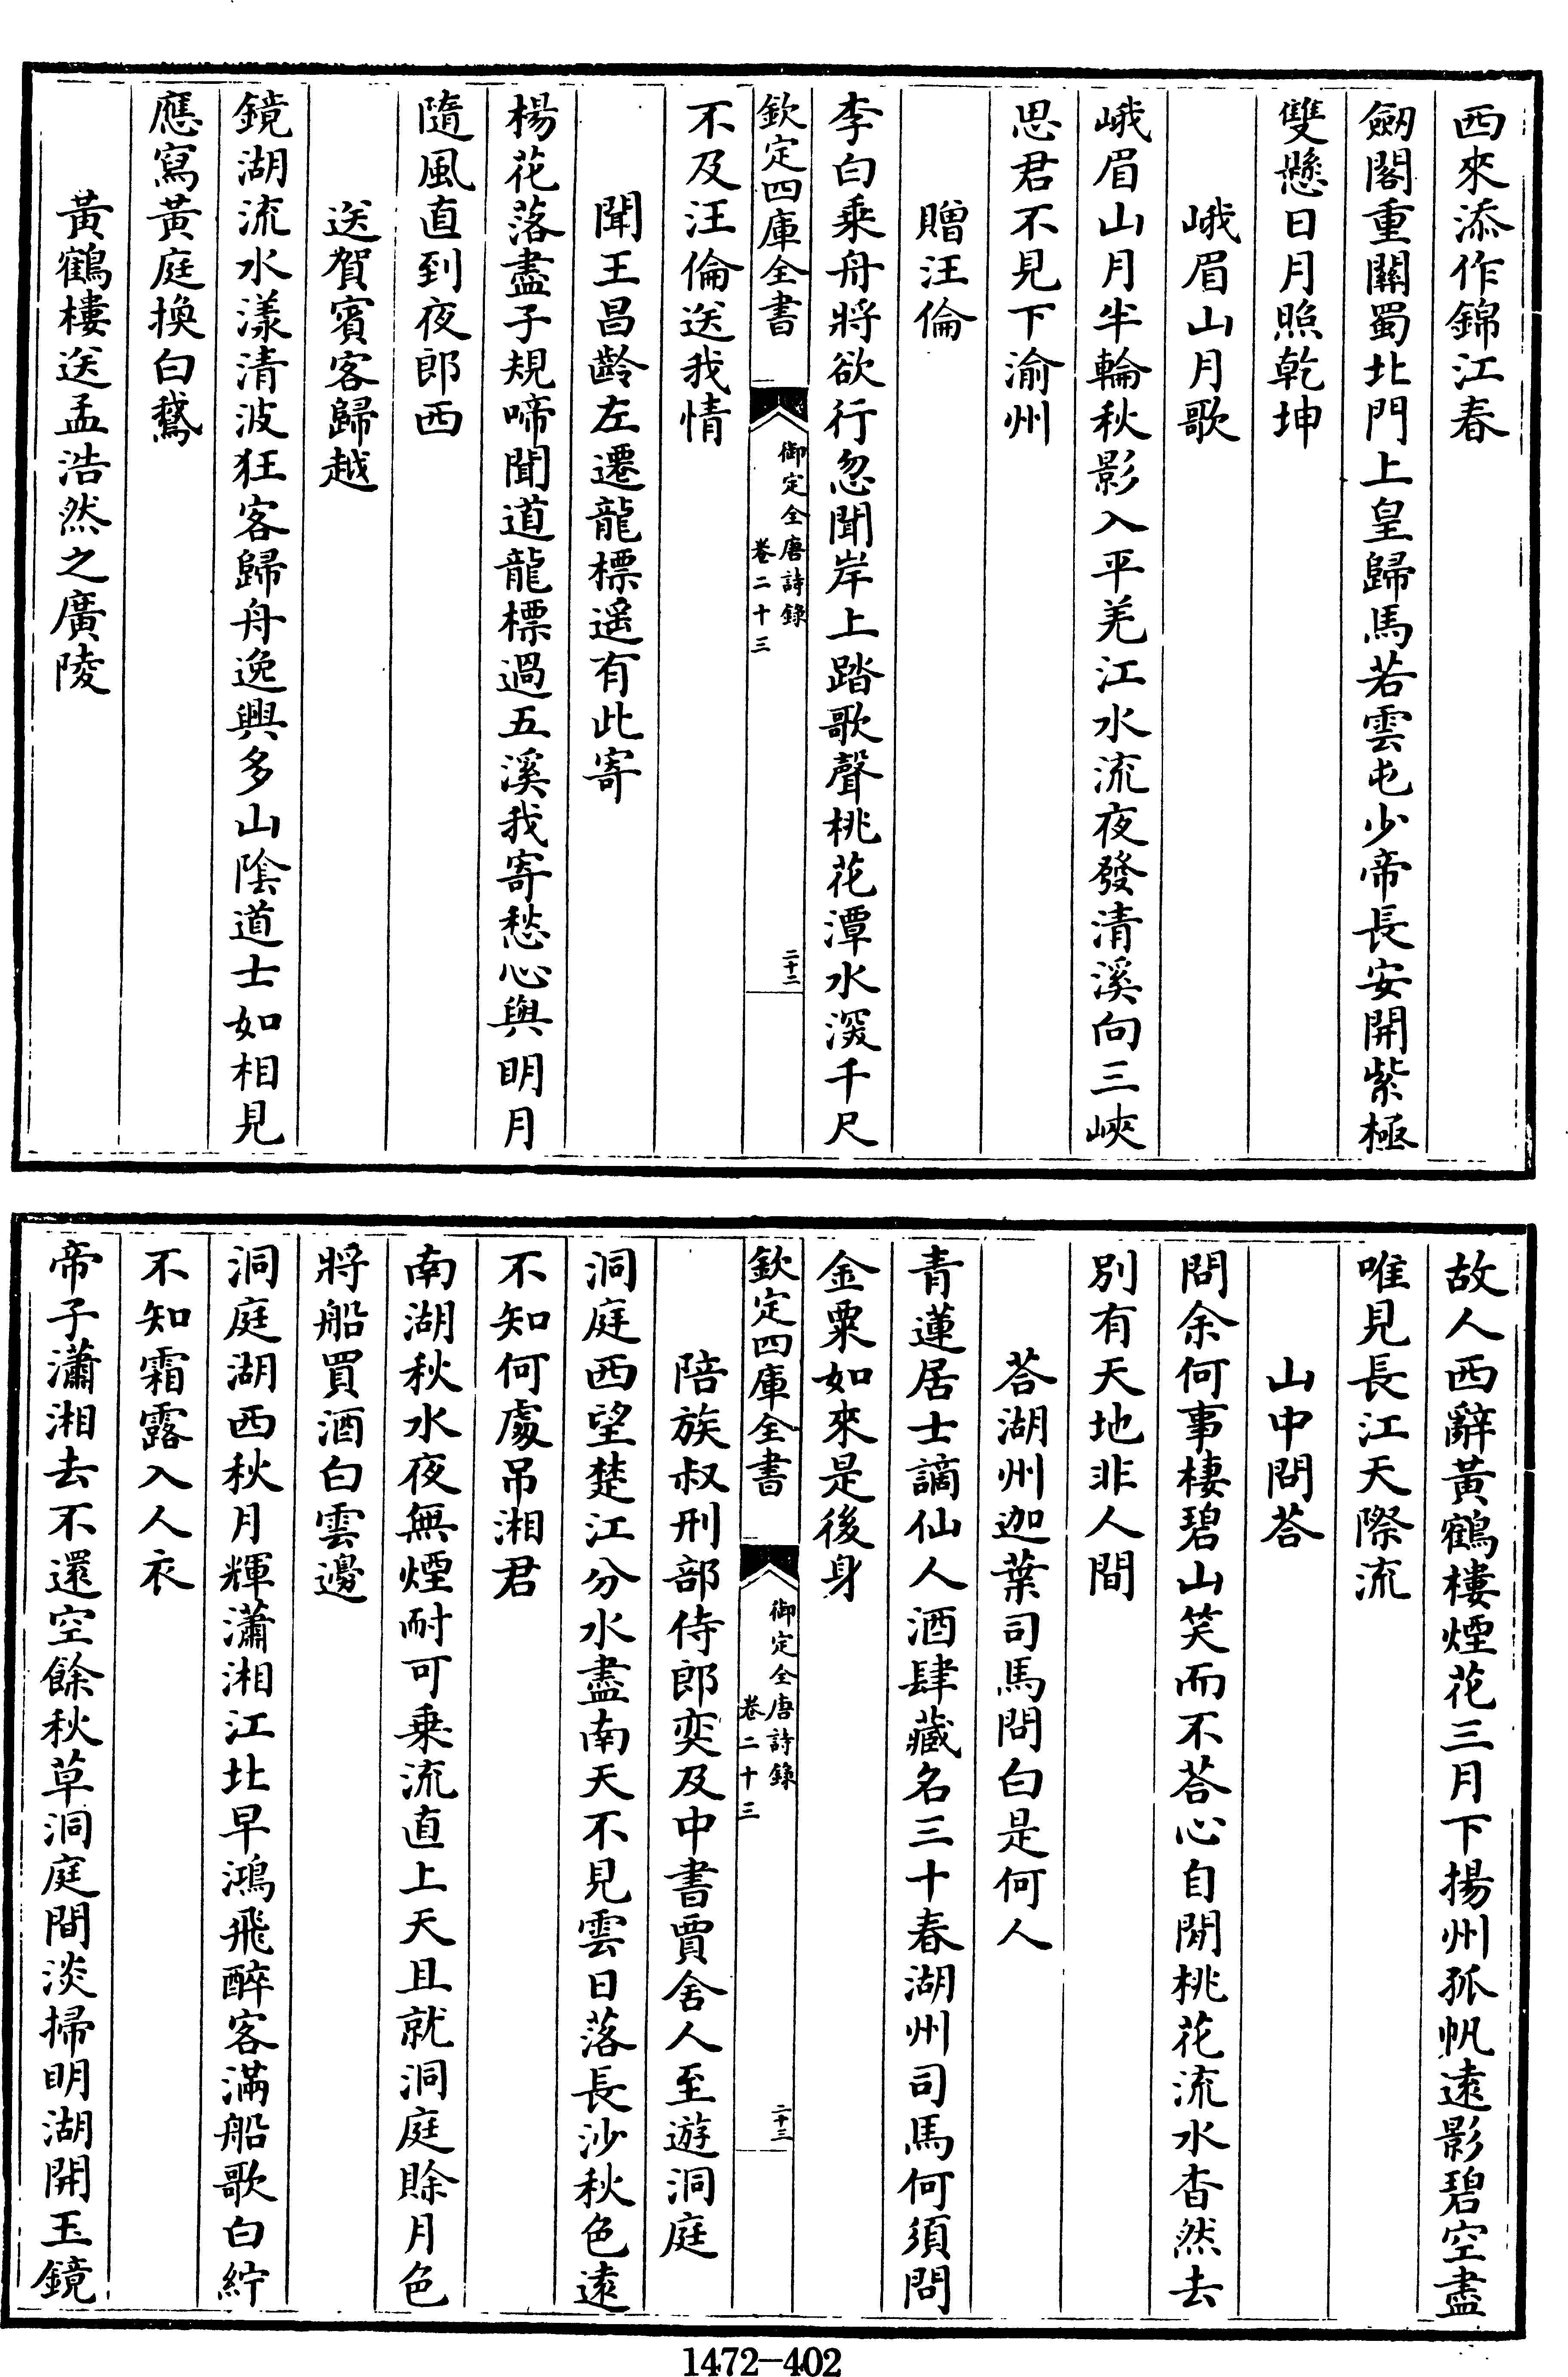 西來添作錦江春
劔閣重關蜀北門上皇歸馬若雲屯少帝長安開紫極
雙懸日月照乾坤
峨眉山月歌
峨眉山月半輪秋影入平羌江水流夜發清溪向三峽
思君不見下渝州
贈汪倫
李白乘舟將欲行忽聞岸上踏歌聲桃花潭水深千尺
欽定四庫全書
御定全唐詩錄
卷二十三
二十二
不及汪倫送我情
聞王昌齡左遷龍標遥有此寄
楊花落盡子規啼聞道龍標過五溪我寄愁心與明月
隨風直到夜郎西
送賀賓客歸越
鏡湖流水漾清波狂客歸舟逸興多山陰道士如相見
應寫黃庭換白鵞
黃鶴樓送孟浩然之廣陵
故人西辭黃鶴樓煙花三月下揚州孤帆逺影碧空盡
唯見長江天際流
山中問荅
問余何事棲碧山笑而不荅心自閒桃花流水杳然去
別有天地非人間
荅湖州迦葉司馬問白是何人
青蓮居士謫仙人酒肆藏名三十春湖州司馬何須問
金粟如來是後身
欽定四庫全書
御定全唐詩錄
卷二十三
二十三
陪族叔刑部侍郎奕及中書賈舍人至遊洞庭
洞庭西望楚江分水盡南天不見雲日落長沙秋色逺
不知何處吊湘君
南湖秋水夜無煙耐可乘流直上天且就洞庭賒月色
將船買酒白雲邊
洞庭湖西秋月輝瀟湘江北早鴻飛醉客滿船歌白紵
不知霜露入人衣
帝子瀟湘去不還空餘秋草洞庭間淡掃明湖開玉鏡
1472-402